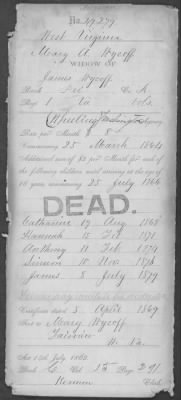 No. 129,279
West Virginia
Mary A. Wycoff
WIDOW OF
James Wycoff
Rank Pvt Co. K
Reg't 1 Va Vols.
Wheeling Agency
Rate per Month $ 8
Commencing 25 March 1864
Additional sum of $2 per Month for each of
the following children until arriving at the age of
16 years, commencing 25 July 1866
DEAD.
Catharine 19 Aug 1868
Hannah 18 Feb 1871
Anthony 11 Feb 1874
Simeon 10 Nov. 1876
James 8 July 1879
Certificate dated 8 April 1869
Sent to Mary Wycoff
Fairview
W. Va.
Act 14th July 1862.
Book C Vol. 15 Page 291
Clerk.